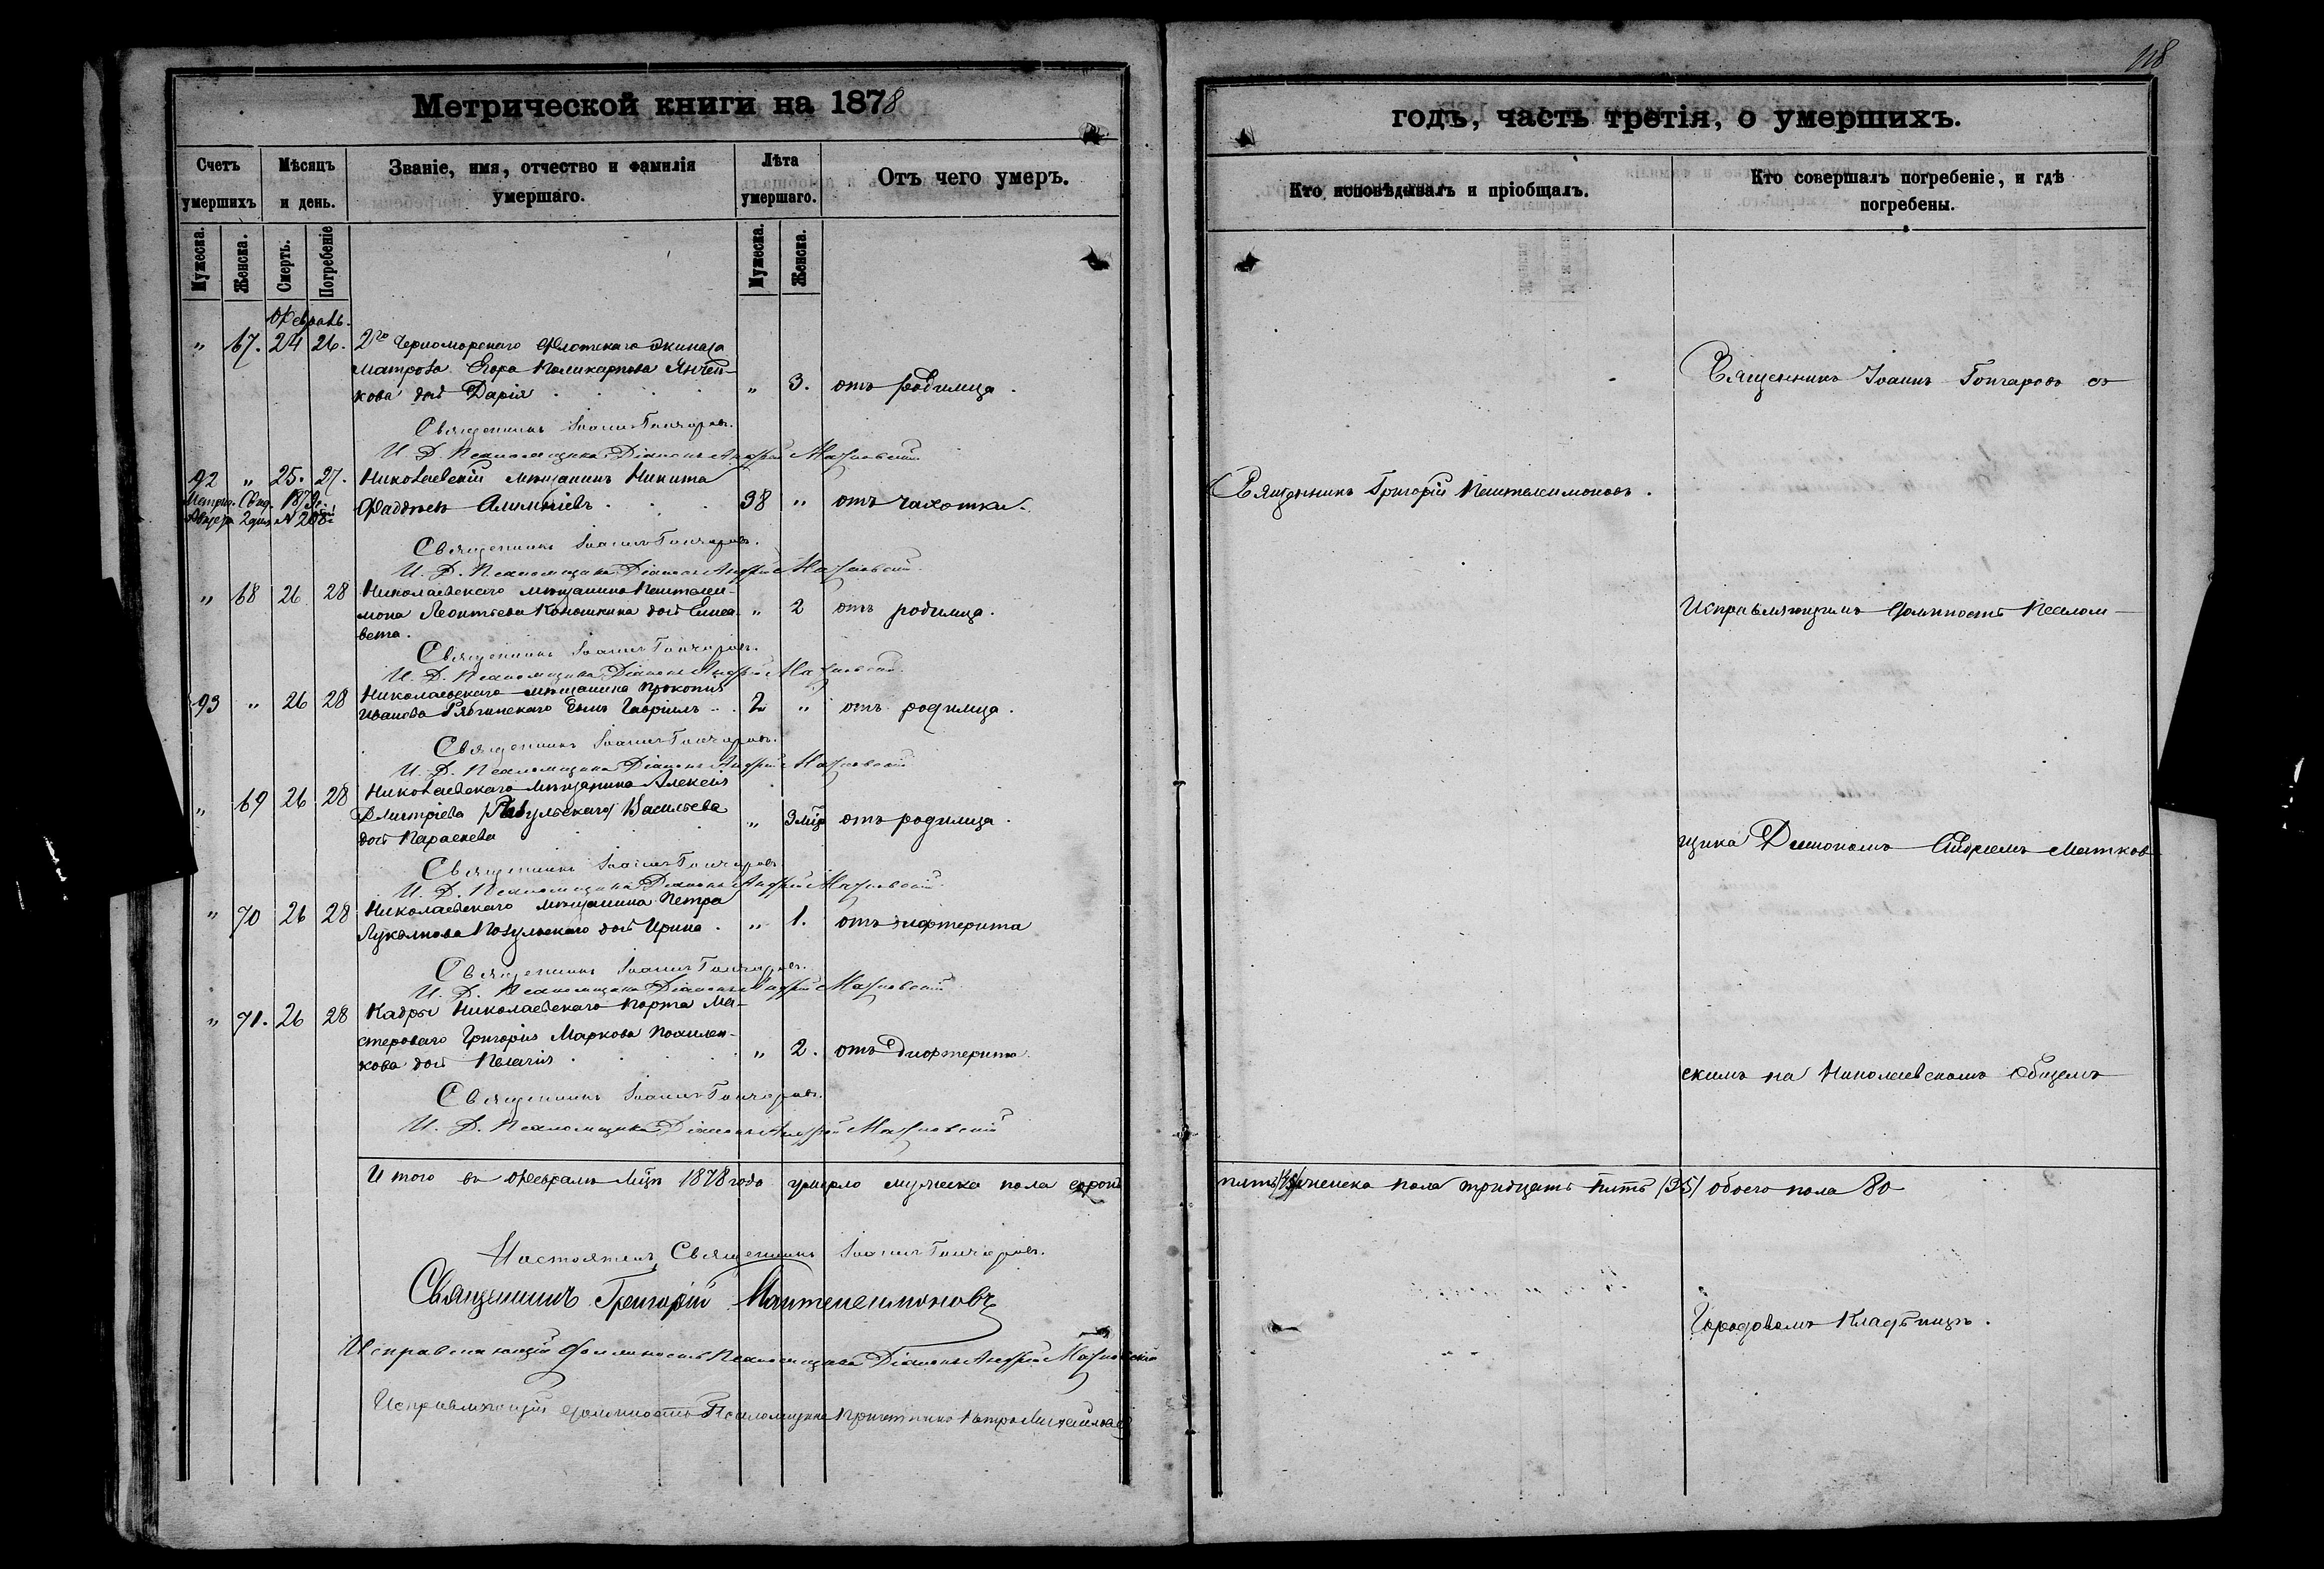 118
Метрической книги на 1878
годъ, часть третія, о умершихъ.
Счетъ умершихъ
Мѣсяцъ и день.
Званіе, имя, отчество и фамилія умершаго.
Лѣта умершаго.
Отъ чего умеръ.
Кто исповѣдывалъ и пріобщалъ.
Кто совершалъ погребеніе, и гдѣ погребены.
Мужеска.
Женска.
Смерть.
Погребеніе
Мужеска.
Женска.
Февраль.
" 67. 24 26. 2го Черноморскаго Флотскаго Экипажа
матроса Егора Поликарпова
кова дочь Дарія " 3. отъ родимца.
Священникъ Іоаннъ Гончаровъ съ
Священникъ Іоаннъ Гончаровъ.
И. Д. Псаломщика Діаконъ Андрей
92 " 25. 27. Николаевскій мѣщанинъ Никита
Фаддѣевъ 38 " отъ чахотки.
Священникъ Григорій Пантелеимоновъ.
№ 208
Священникъ Іоаннъ Гончаровъ.
И. Д. Псаломщика Діаконъ Андрей
" 68 26 28 Николаевскаго мѣщанина Пантелеи-
мона Леонтьева Коношкина дочь Елиса- " 2 отъ родимца.
вета.
Исправляющимъ должность Псалом-
Священникъ Іоаннъ Гончаровъ.
И. Д. Псаломщика Діаконъ Андрей
93 " 26 28 Николаевскаго мѣщанина Прокопія
Иванова сынъ Гавріилъ 2 " отъ родимца.
Священникъ Іоаннъ Гончаровъ.
И. Д. Псаломщика Діаконъ Андрей
" 69 26 28 Николаевскаго мѣщанина Алексія
Дмитріева Васильева
дочь Параскева " 3 мѣс. отъ родимца.
щика Діакономъ Андреемъ
Священникъ Іоаннъ Гончаровъ.
И. Д. Псаломщика Діаконъ Андрей
" 70 26 28 Николаевскаго мѣщанина Петра
дочь Ирина. " 1. отъ дифтерита
Священникъ Іоаннъ Гончаровъ.
И. Д. Псаломщика Діаконъ Андрей
" 71. 26 28 Кадры Николаевскаго порта Ма-
стероваго Григорія Маркова
кова дочь Пелагія " 2. отъ дифтерита.
скимъ на Николаевскомъ общемъ
Священникъ Іоаннъ Гончаровъ.
И. Д. Псаломщика Діаконъ Андрей
Итого въ Февралѣ мцѣ 1878 года умерло мужеска пола сорокъ
пять /45/ женска пола тридцать пять /35/ обоего пола 80
Настоятель Священникъ Іоаннъ Гончаровъ.
Священникъ Григорій Пантелеимоновъ
Городовомъ Кладбищѣ.
Исправляющій должность Псаломщика Діаконъ Андрей
Исправляющій должность Псаломщика